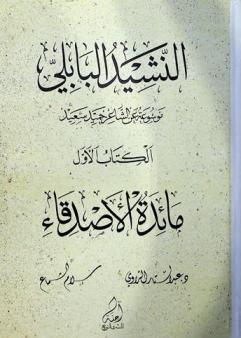 النشيد البابلي
موسوعة عن الشاعر حميد سعيد
الكتاب الأول
مائدة الأصدقاء
د. عبد الستار الراوي
سلام الشماع